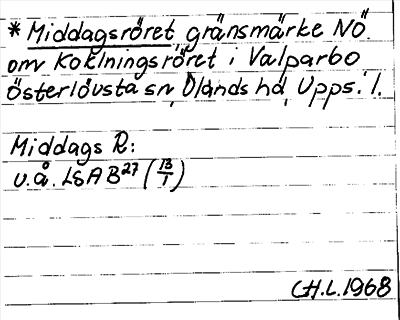 * Middagsröret gränsmärke NÖ.
om Koklningsröret i Valparbo
Österlövsta sn, Olands hd, Upps. l.
Middags R:
u.å. LSA B27 (13/1)
C.H.L. 1968